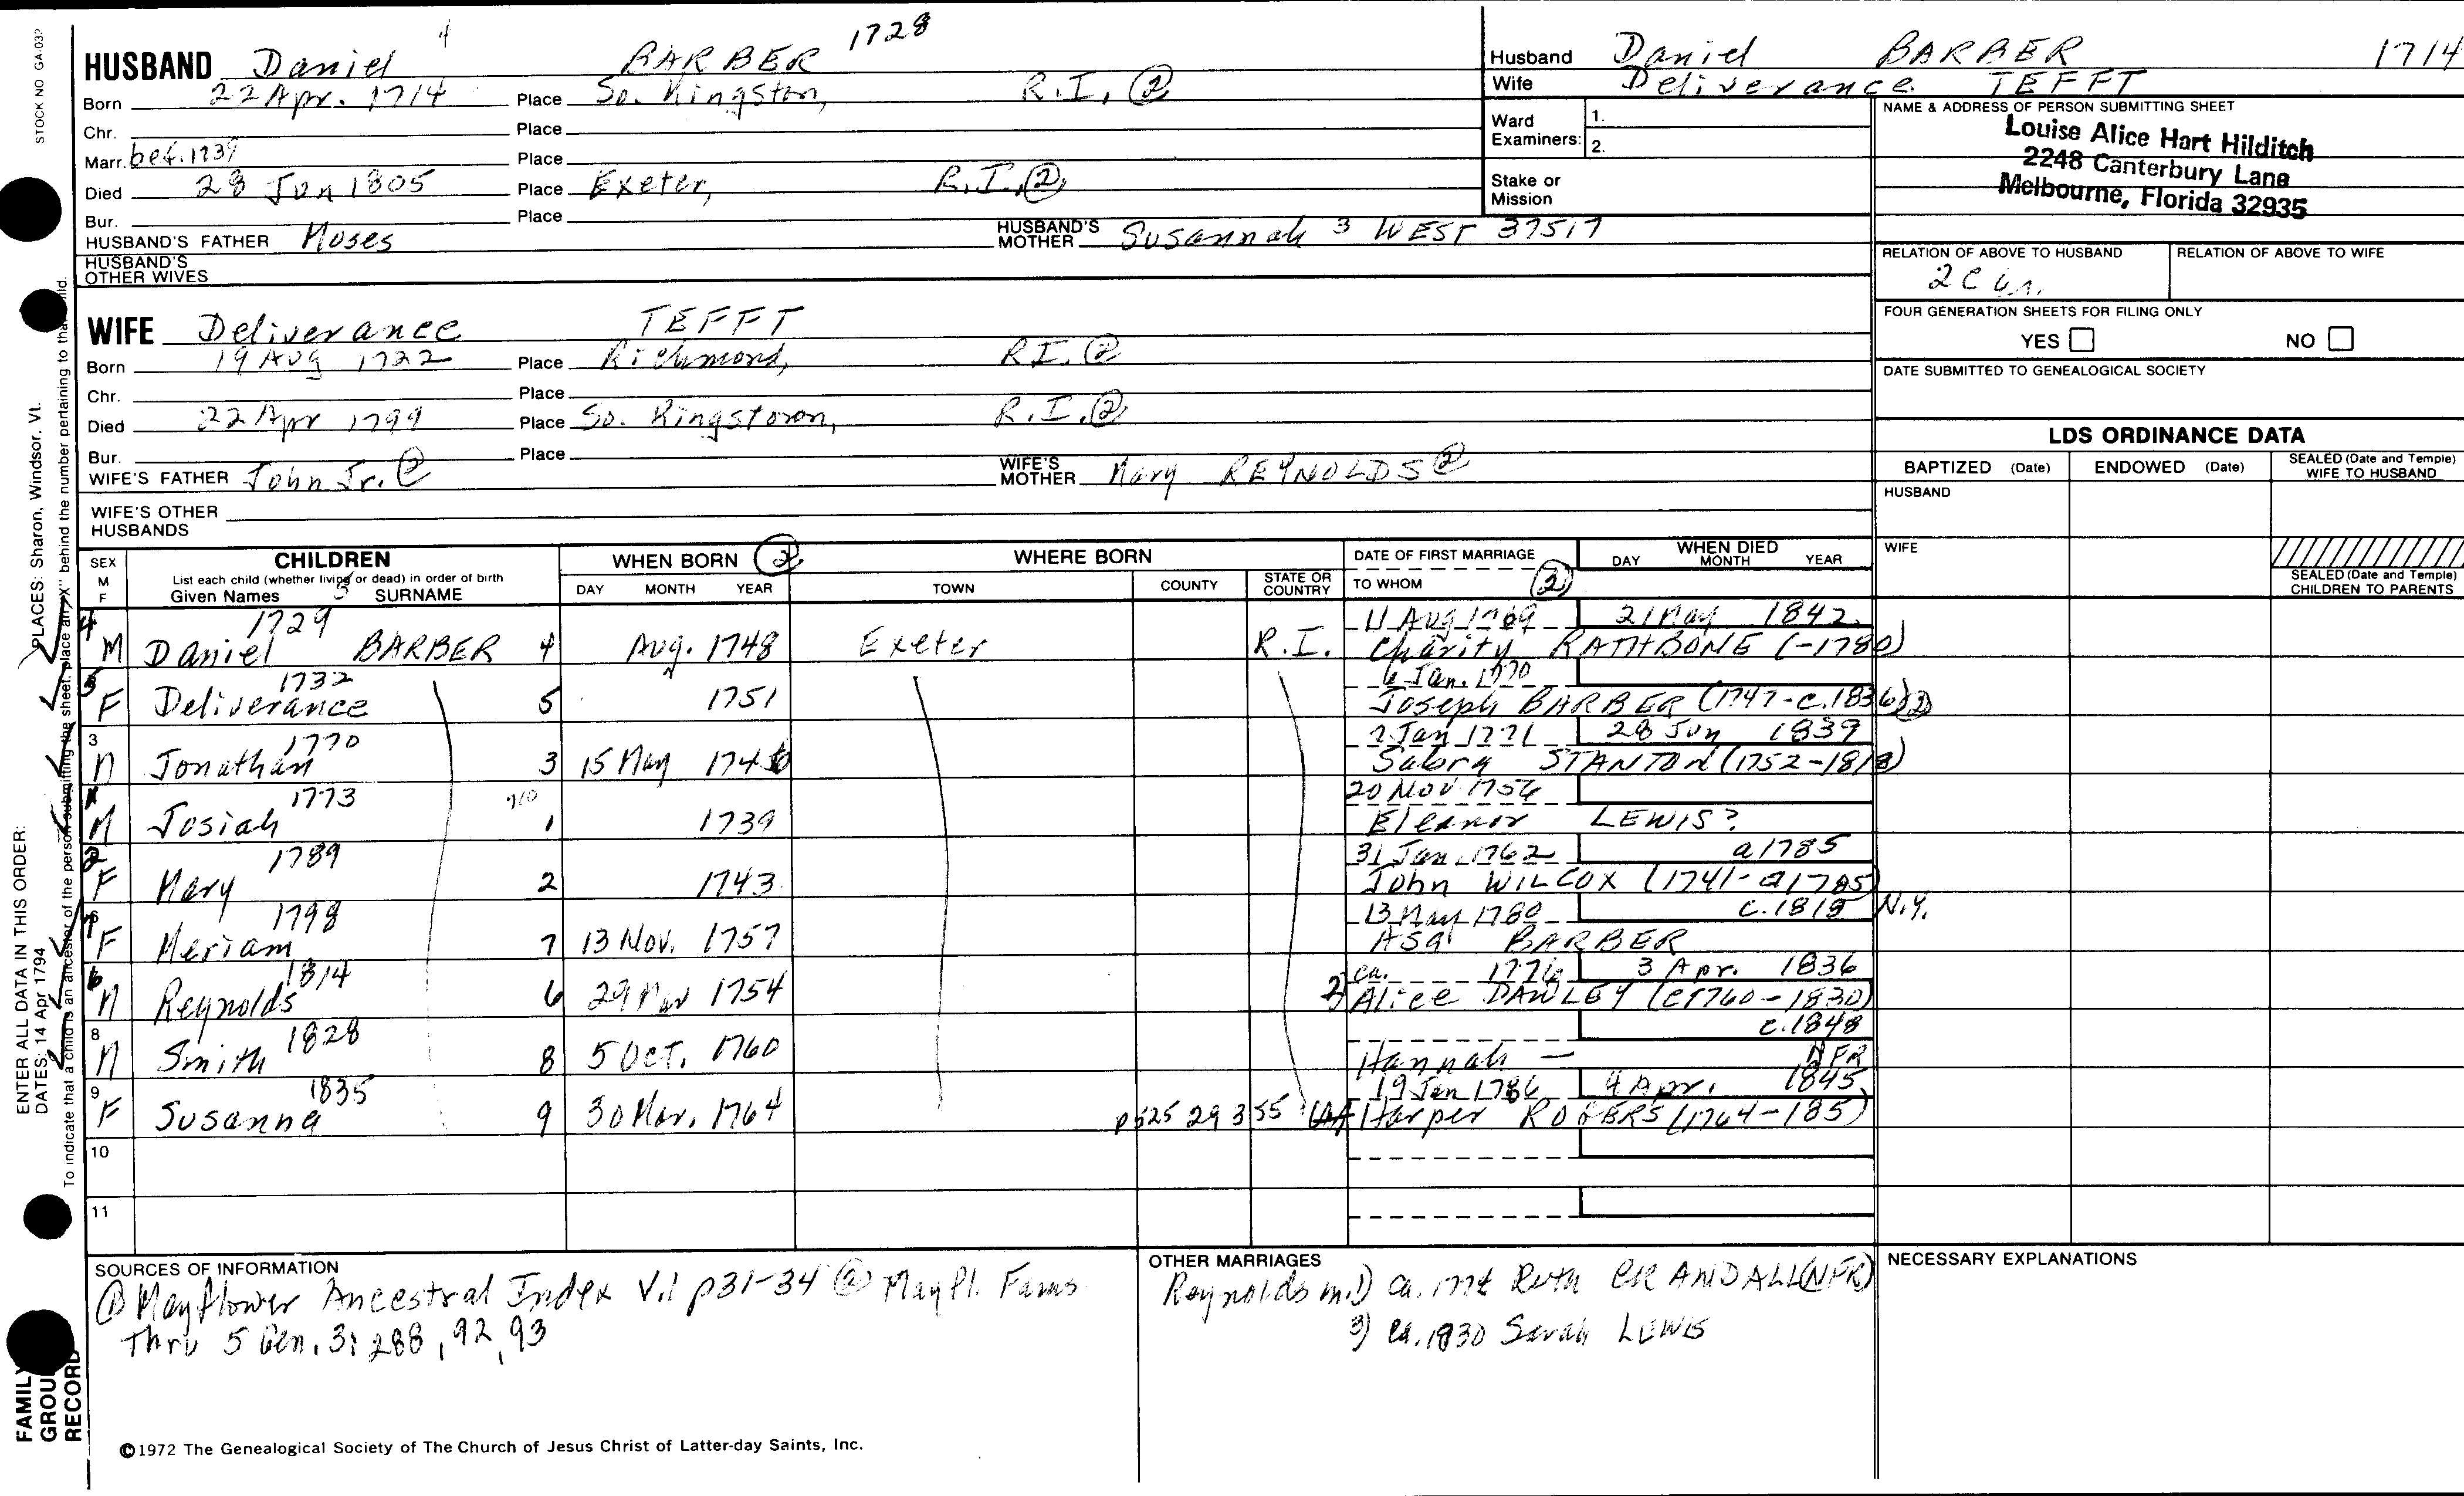 STOCK NO GA-032
HUSBAND Daniel 4 BARBER 1728
Born 22 Apr. 1714 Place So. Kingston, R.I. ②
Chr. Place
Marr. bef. 1739 Place
Died 28 Jun 1805 Place Exeter, R.I. ②
Bur. Place
HUSBAND'S FATHER Moses HUSBAND'S MOTHER Susannah 3 WEST 37517
HUSBAND'S OTHER WIVES
WIFE Deliverance TEFFT
Born 19 Aug 1722 Place Richmond, R.I. ②
Chr. Place
Died 22 Apr 1799 Place So. Kingstown, R.I. ②
Bur. Place
WIFE'S FATHER John Jr. ② WIFE'S MOTHER Mary REYNOLDS ②
WIFE'S OTHER HUSBANDS
Husband Daniel BARBER 1714
Wife Deliverance TEFFT
Ward Examiners: 1. 2.
Stake or Mission
NAME & ADDRESS OF PERSON SUBMITTING SHEET
Louise Alice Hart Hilditch
2248 Canterbury Lane
Melbourne, Florida 32935
RELATION OF ABOVE TO HUSBAND RELATION OF ABOVE TO WIFE
2C
FOUR GENERATION SHEETS FOR FILING ONLY
YES NO
DATE SUBMITTED TO GENEALOGICAL SOCIETY
LDS ORDINANCE DATA
BAPTIZED (Date) ENDOWED (Date) SEALED (Date and Temple) WIFE TO HUSBAND
HUSBAND
WIFE
SEALED (Date and Temple) CHILDREN TO PARENTS
SEX M F CHILDREN WHEN BORN ② WHERE BORN DATE OF FIRST MARRIAGE WHEN DIED
List each child (whether living or dead) in order of birth
Given Names 3 SURNAME DAY MONTH YEAR TOWN COUNTY STATE OR COUNTRY TO WHOM ② DAY MONTH YEAR
4 1729 11 Aug 1769 21 May 1842
M Daniel BARBER 4 Aug. 1748 Exeter R.I. Charity RATHBONE (-1780)
5 1732 6 Jan. 1770
F Deliverance 5 1751 Joseph BARBER (1747-c.1836) ②
3 1770 2 Jan 1771 28 Jun 1839
M Jonathan 3 15 May 174 Sabra STANTON (1752-1818)
1 1773 20 Nov 1756
M Josiah 1 1739 Eleanor LEWIS?
2 1789 31 Jan. 1762 a 1785
F Mary 2 1743 John WILCOX (1741-a1785)
1798 13 May 1780 c. 1818 N.Y.
F Meriam 7 13 Nov. 1757 Asa BARBER
6 1814 ca. 1776 3 Apr. 1836
M Reynolds 6 29 Mar 1754 2) Alice DAWLEY (c1760-1830)
8 1828 c. 1848
M Smith 8 5 Oct. 1760 Hannah — NFR
9 1835 19 Jan 1786 4 Apr. 1845
F Susanna 9 30 Mar. 1764 p525 29 3 55 Harper ROGERS (1764-185)
10
11
SOURCES OF INFORMATION
① Mayflower Ancestral Index V.1 p31-34 ② Mayfl. Fams
Thru 5 Gen. 3: 288, 92, 93
OTHER MARRIAGES
Reynolds m. 1) ca. 1774 Ruth CRANDALL (NFR)
3) ca. 1830 Sarah LEWIS
NECESSARY EXPLANATIONS
©1972 The Genealogical Society of The Church of Jesus Christ of Latter-day Saints, Inc.
ENTER ALL DATA IN THIS ORDER:
PLACES: Sharon, Windsor, Vt.
DATES: 14 Apr 1794
To indicate that a child is an ancestor of the person submitting the sheet, place an "X" behind the number pertaining to that child.
FAMILY GROUP RECORD